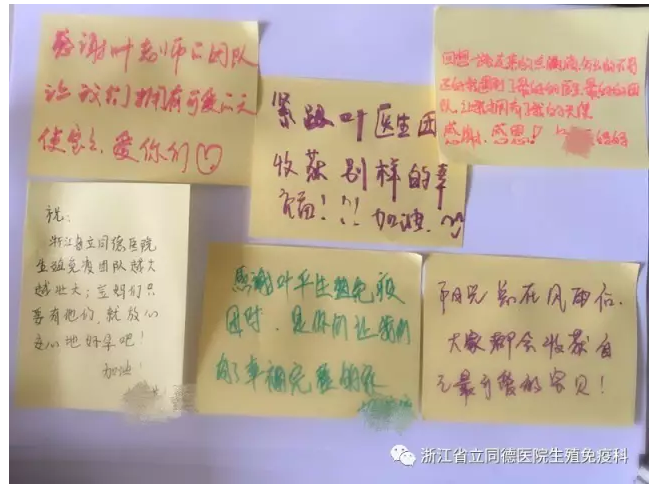 感谢叶老师的团队
让我们拥有可爱的天
使宝宝、爱你们
紧跟叶医生团
收获别样的幸
福!!! 加油.
回想一路走来的点滴,
感谢、感恩!
祝:
浙江省立同德医院
生殖免疫团队越大
越壮大;宝妈们只
要有他们,就放心
安心地好孕吧!
加油!
感谢叶平生殖免疫
团队,是你们让我们
有了幸福完整的家
阳光总在风雨后.
大家都会收获自
己最可爱的宝贝!
浙江省立同德医院生殖免疫科